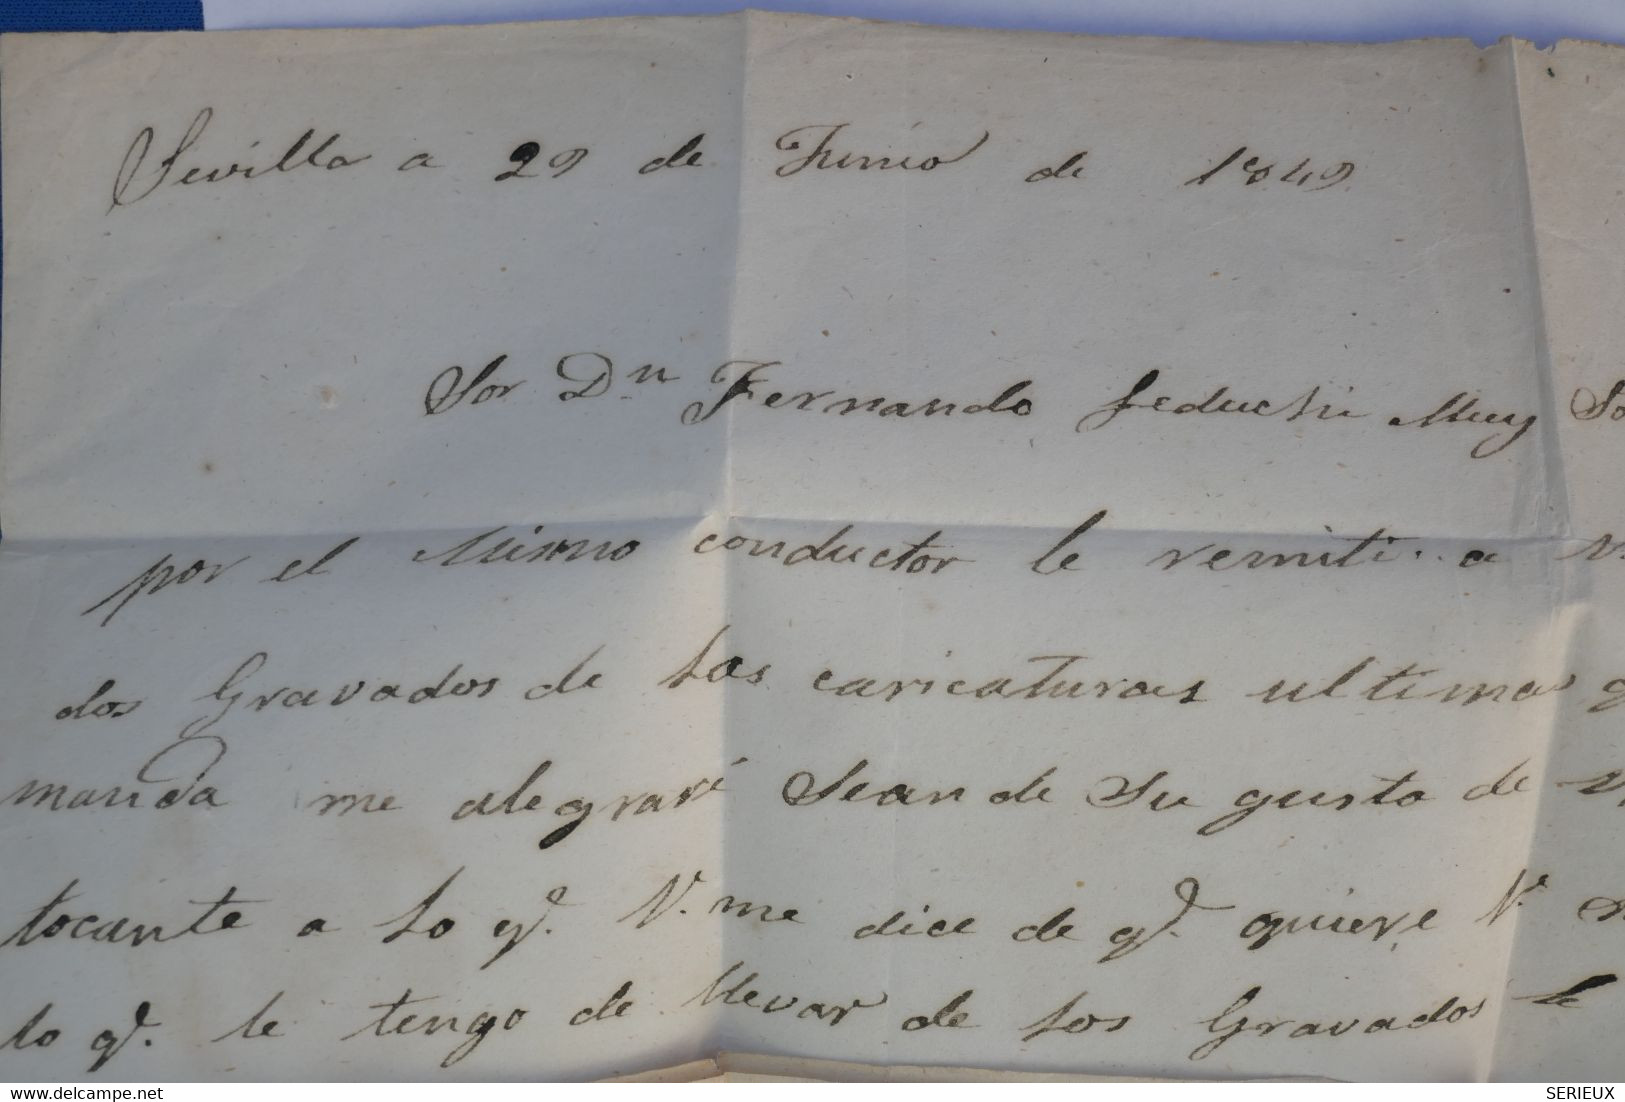 Sevilla a 29 de Junio de 1849
Sor Dn Fernando Muy
por el Mismo conductor le remiti a
dos Gravados de los caricaturas ultima
manda me alegraré Sean de Su gusto de
tocante a lo q.e V. me dice de q.e quiere V.
lo q.e le tengo de llevar de los Gravados le
delcampe.net
SERIEUX